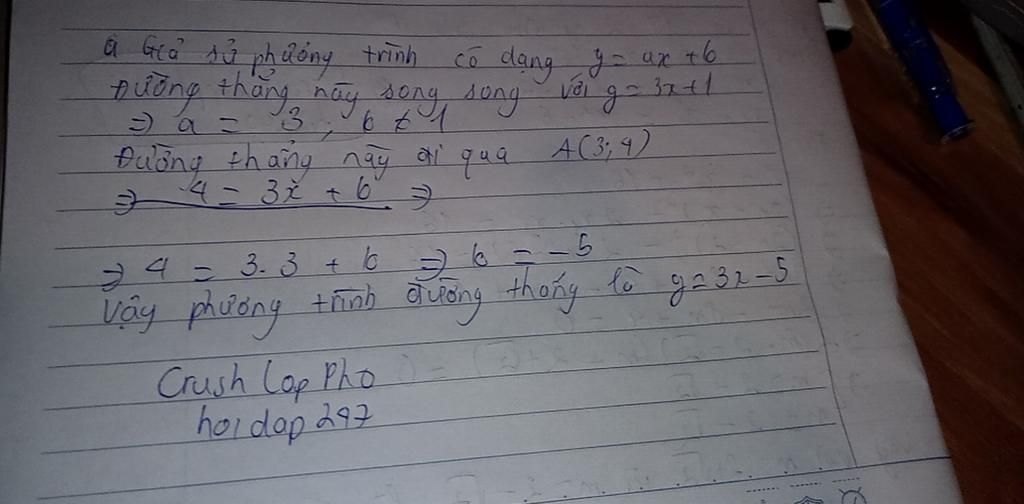 a Giả sử phương trình có dạng y = ax + b
Đường thẳng này song song với y = 3x+1
=> a = 3 ; b ≠ 1
Đường thẳng này đi qua A(3;4)
=> 4 = 3x + b =>
=> 4 = 3.3 + b => b = -5
Vậy phương trình đường thẳng là y = 3x - 5
Crush Lop Pho
hoidap247